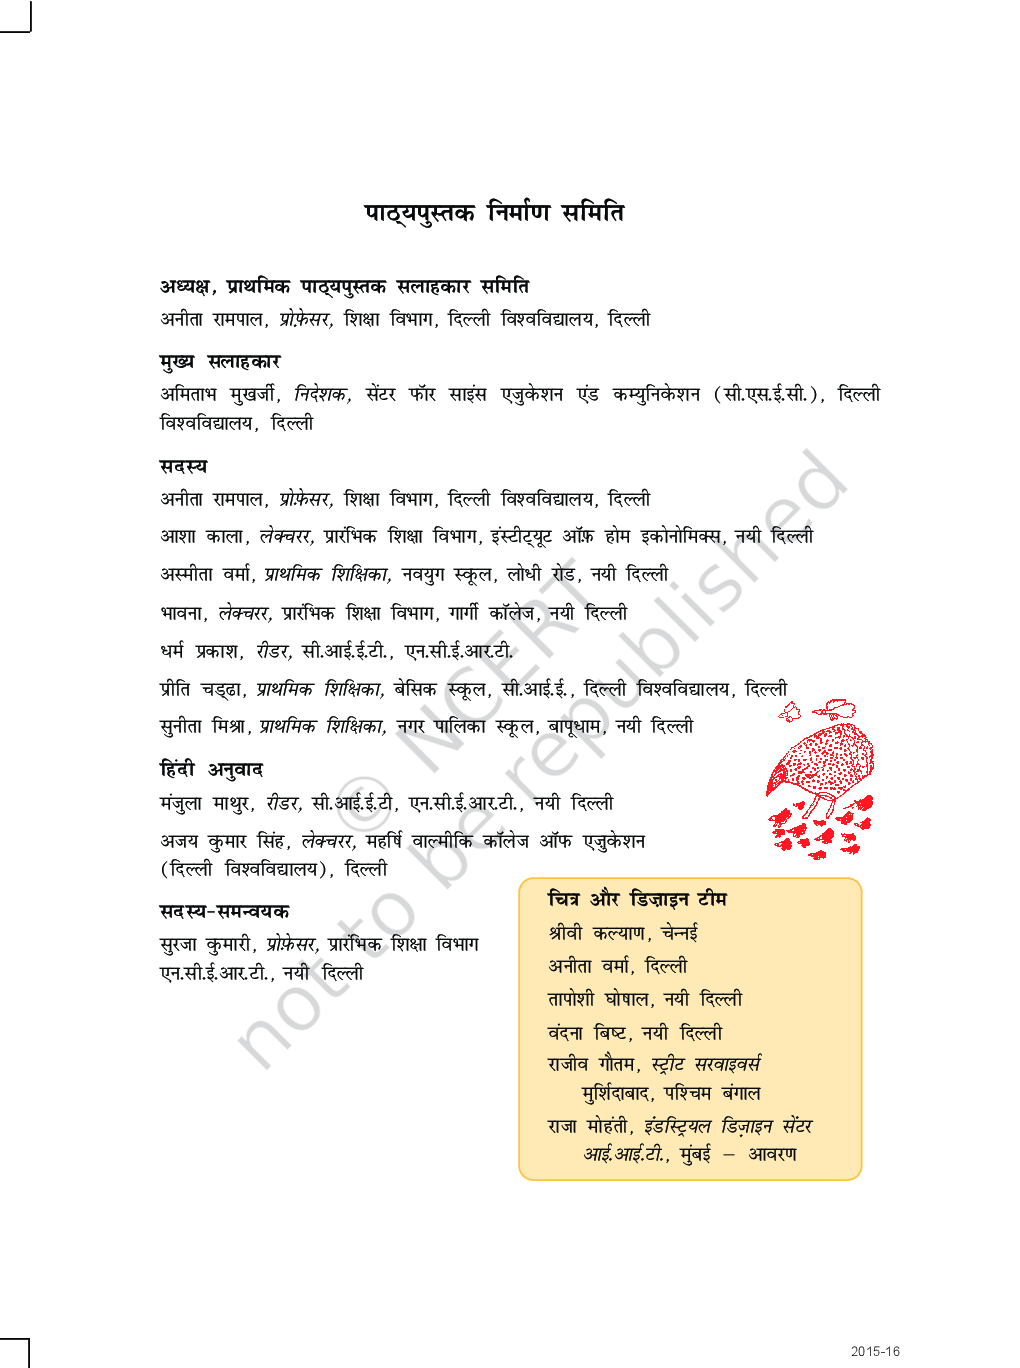 पाठ्यपुस्तक निर्माण समिति
अध्यक्ष, प्राथमिक पाठ्यपुस्तक सलाहकार समिति
अनीता रामपाल, प्रोफ़ेसर, शिक्षा विभाग, दिल्ली विश्वविद्यालय, दिल्ली
मुख्य सलाहकार
अमिताभ मुखर्जी, निदेशक, सेंटर फॉर साइंस एजुकेशन एंड कम्युनिकेशन (सी.एस.ई.सी.), दिल्ली
विश्वविद्यालय, दिल्ली
सदस्य
अनीता रामपाल, प्रोफ़ेसर, शिक्षा विभाग, दिल्ली विश्वविद्यालय, दिल्ली
आशा काला, लेक्चरर, प्रारंभिक शिक्षा विभाग, इंस्टीट्यूट ऑफ़ होम इकोनोमिक्स, नयी दिल्ली
अस्मीता वर्मा, प्राथमिक शिक्षिका, नवयुग स्कूल, लोधी रोड, नयी दिल्ली
भावना, लेक्चरर, प्रारंभिक शिक्षा विभाग, गार्गी कॉलेज, नयी दिल्ली
धर्म प्रकाश, रीडर, सी.आई.ई.टी., एन.सी.ई.आर.टी.
प्रीति चड्ढा, प्राथमिक शिक्षिका, बेसिक स्कूल, सी.आई.ई., दिल्ली विश्वविद्यालय, दिल्ली
सुनीता मिश्रा, प्राथमिक शिक्षिका, नगर पालिका स्कूल, बापूधाम, नयी दिल्ली
हिंदी अनुवाद
मंजुला माथुर, रीडर, सी.आई.ई.टी, एन.सी.ई.आर.टी., नयी दिल्ली
अजय कुमार सिंह, लेक्चरर, महर्षि वाल्मीकि कॉलेज ऑफ एजुकेशन
(दिल्ली विश्वविद्यालय), दिल्ली
सदस्य-समन्वयक
सुरजा कुमारी, प्रोफ़ेसर, प्रारंभिक शिक्षा विभाग
एन.सी.ई.आर.टी., नयी दिल्ली
चित्र और डिज़ाइन टीम
श्रीवी कल्याण, चेन्नई
अनीता वर्मा, दिल्ली
तापोशी घोषाल, नयी दिल्ली
वंदना बिष्ट, नयी दिल्ली
राजीव गौतम, स्ट्रीट सरवाइवर्स
मुर्शिदाबाद, पश्चिम बंगाल
राजा मोहंती, इंडस्ट्रियल डिज़ाइन सेंटर
आई.आई.टी., मुंबई – आवरण
© NCERT
not to be republished
2015-16